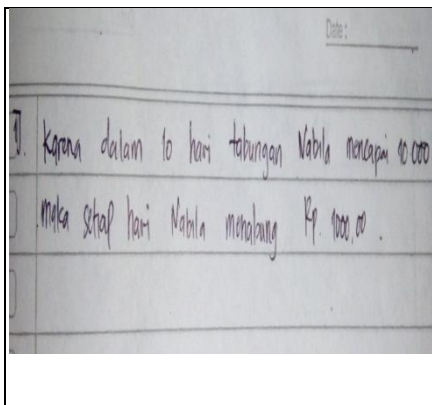 Date:
1]. Karena dalam 10 hari tabungan Nabila mencapai 10.000
maka setiap hari Nabila menabung Rp. 1000,00.